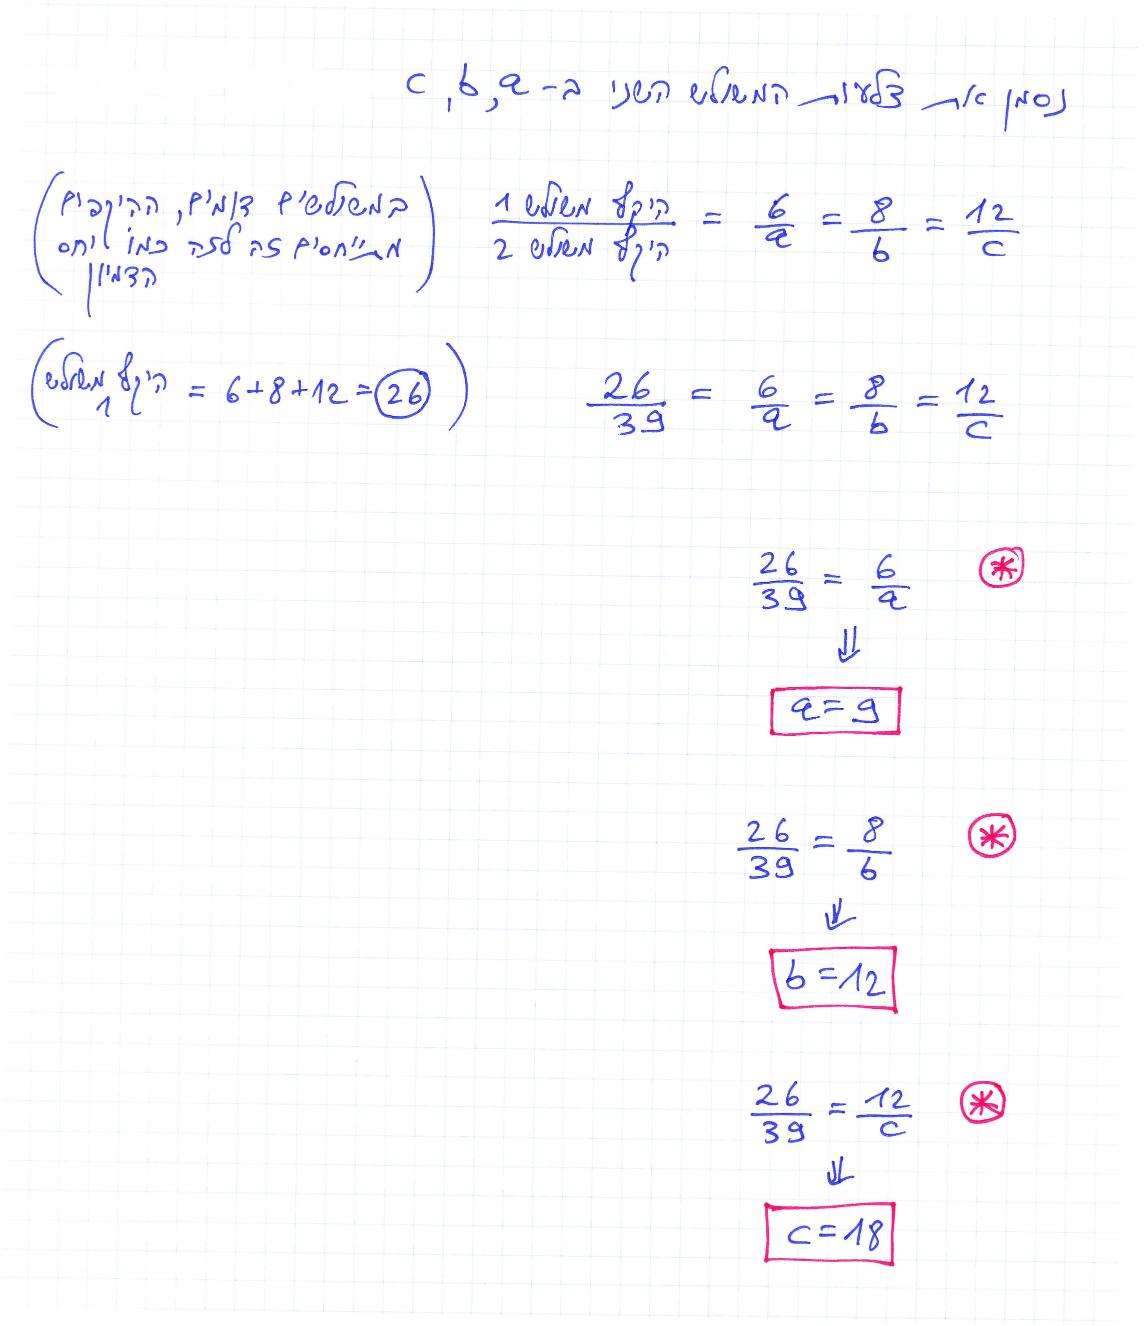 נסמן את צלעות המשולש השני ב- a, b, c
היקף משולש 1 / היקף משולש 2 = 6/a = 8/b = 12/c
(במשולשים דומים, ההיקפים
מתייחסים זה לזה כמו יחס
הדמיון)
26/39 = 6/a = 8/b = 12/c
(היקף משולש 1 = 6+8+12 = 26)
* 26/39 = 6/a
⇓
a = 9
* 26/39 = 8/b
⇓
b = 12
* 26/39 = 12/c
⇓
c = 18